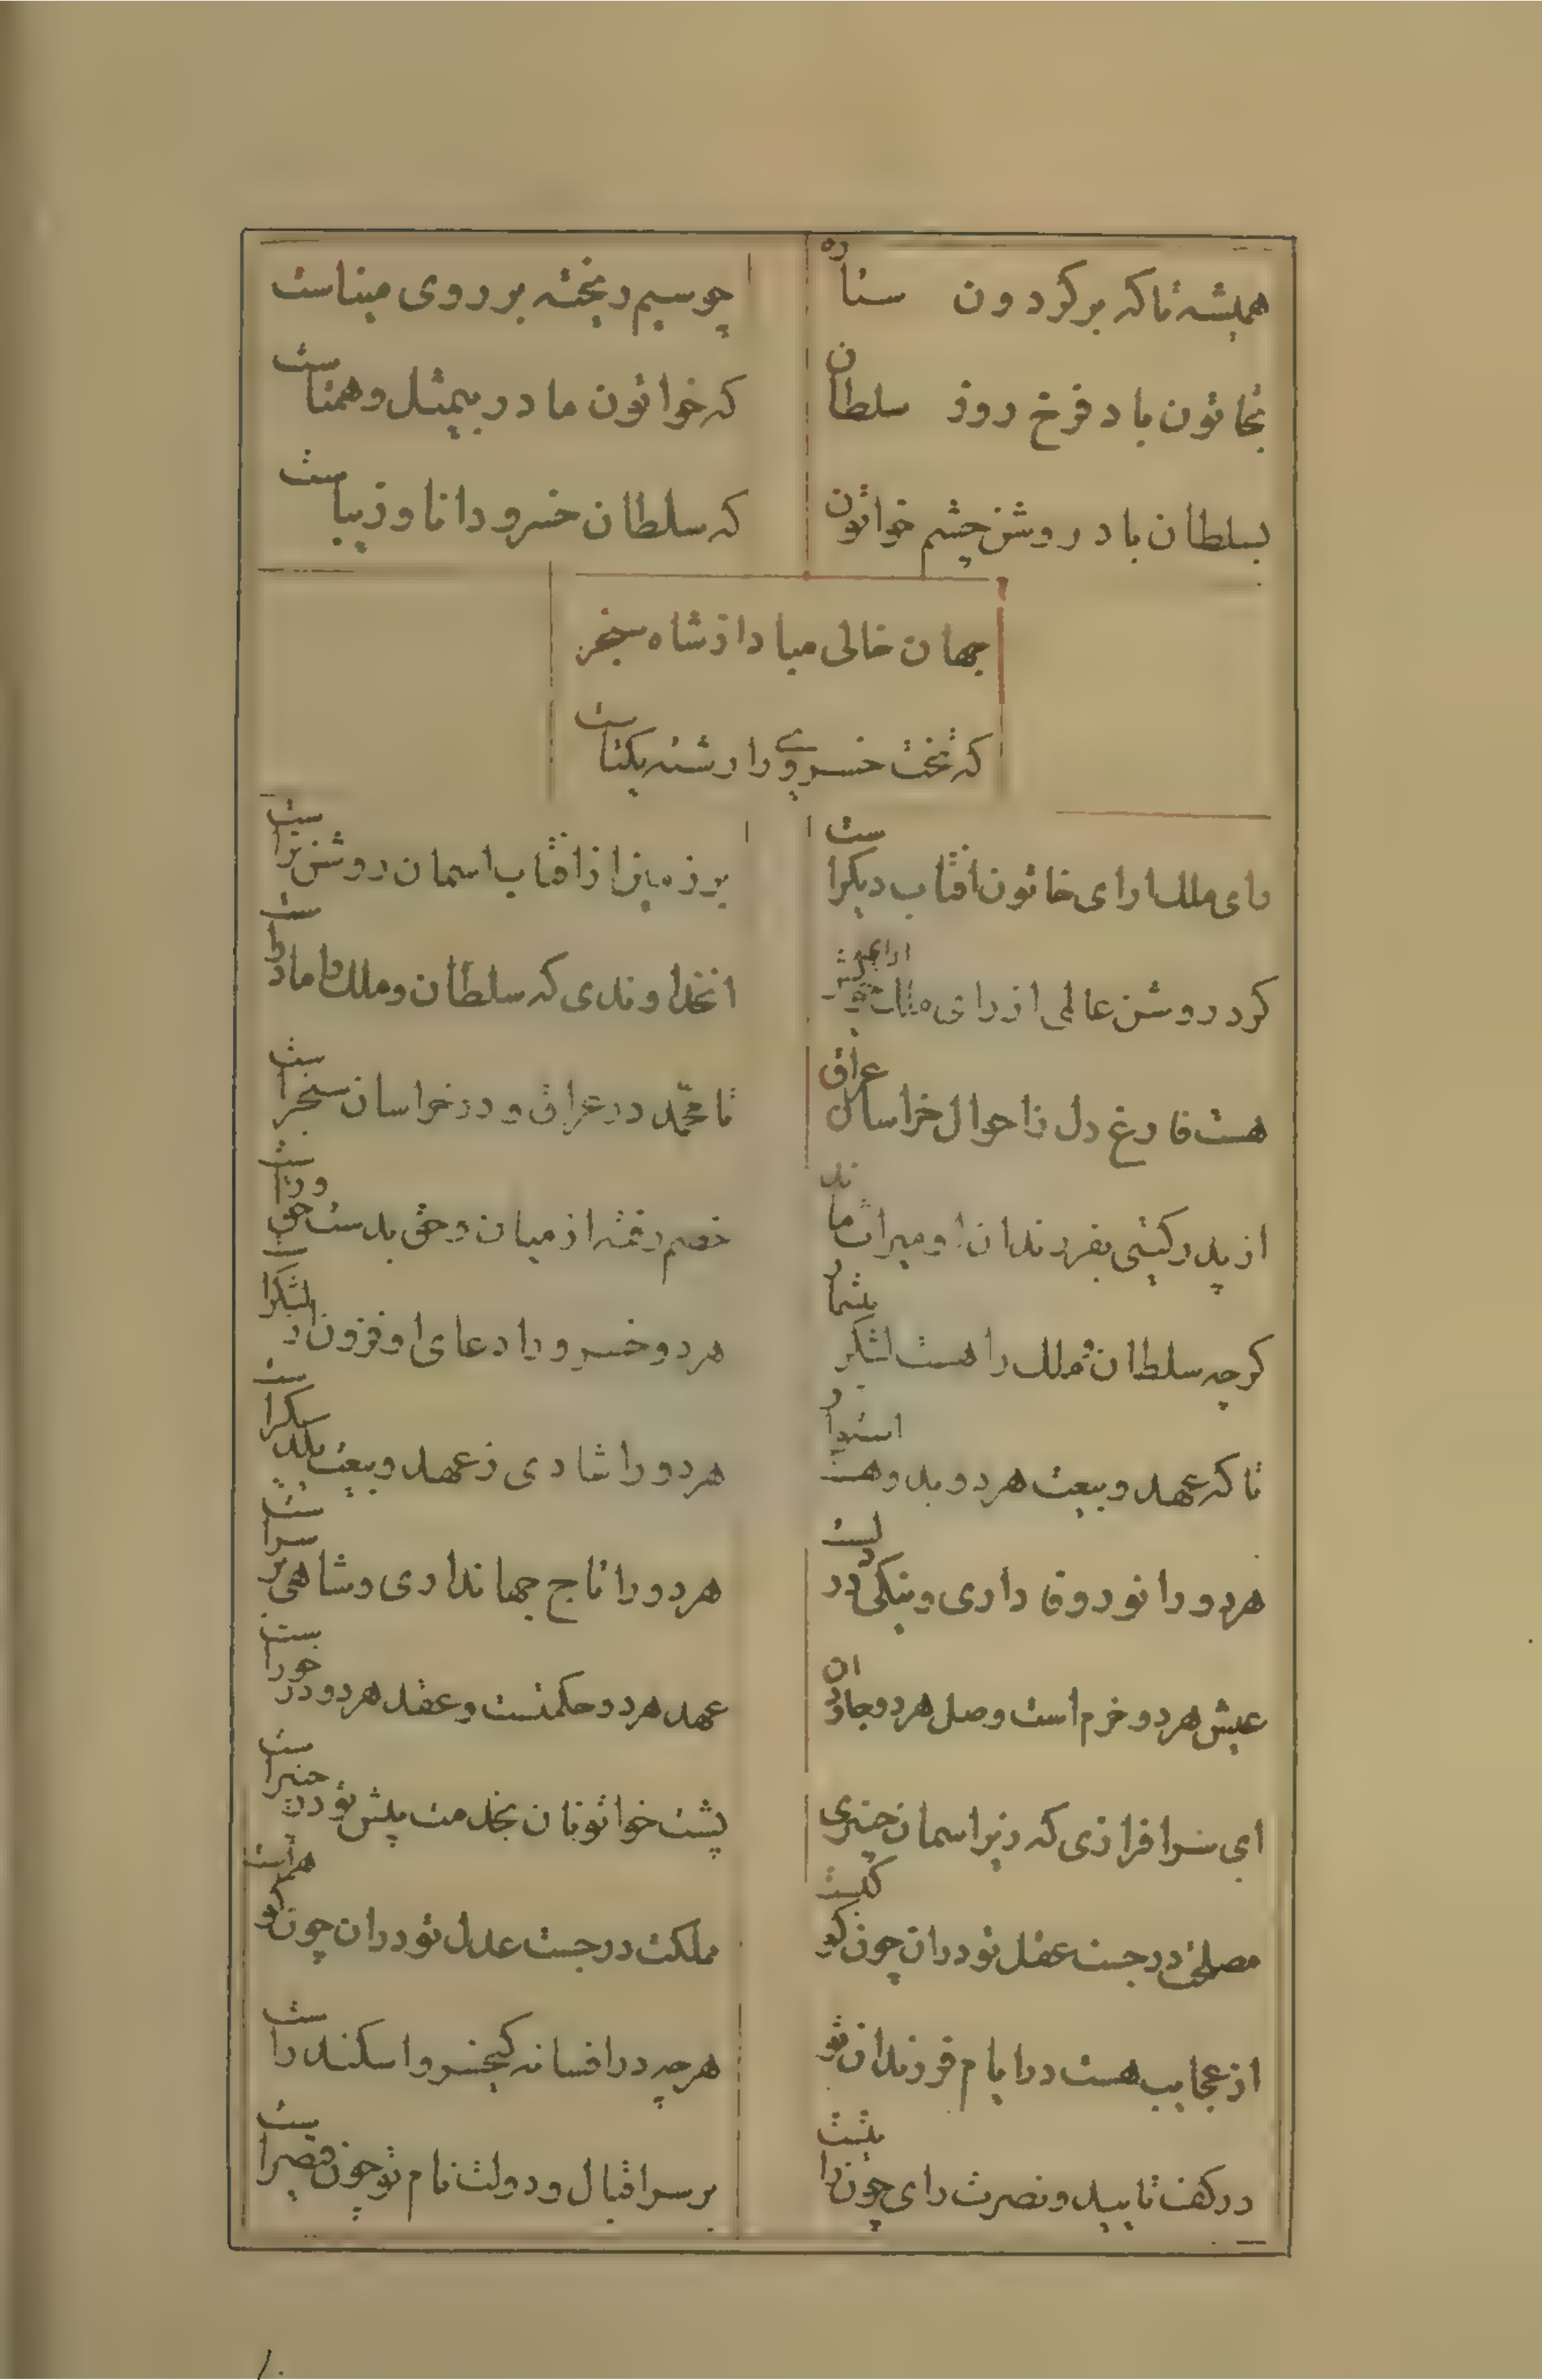 همیشه تا که بر کردون ستاره
چو سیم ریخته بر روی میناست
بخاتون باد فرخ روز سلطان
که خواتون مادر بیمثل و همتاست
بسلطان باد روشن چشم خواتون
که سلطان خسرو دانا و زیباست
جهان خالی مباد از شاه سنجر
که تخت خسروی را رشته یکتاست
رای ملک ارای خاتون افتاب دیکراست
بر زمین از افتاب اسمان روشن تراست
کرد روشن عالمی از رای ملک ارای خویش
انخداوندی که سلطان و ملک را مادر است
هست فارغ دل ز احوال خراسان عراق
تا محمد در عراق و در خراسان سنجراست
از پدر کیتی بفرزندان او میراث ماند
خصم رفته از میان و حق بدست حق وراست
کرچه سلطان و ملک را هست لشکر بیشمار
هر دو خسرو را دعای او فزون از لشکراست
تا که عهد و بیعت هر دو بدو هست استوار
هر دو را شادی ز عهد و بیعت یکدیکراست
هر دو را نور وفاداری و نیکی در دلست
هر دو را تاج جهانداری و شاهی بر سراست
عیش هر دو خرم است و وصل هر دو جاودان
عهد هر دو حکمتست و عقل هر دو در خوراست
ای سرافرازی که زیر اسمان چنبری
پشت خواتونان بخدمت پیش تو در چنبراست
مصلحت درجست عقل تو در ان چون کوکبست
مملکت درجست عدل تو در ان چون کوهراست
از عجایب هست در ایام فرزندان تو
هرچه در افسانه کیخسرو و اسکندراست
در کف تایید و نصرت رای چون رایتست
بر سر اقبال و دولت نام تو چون قیصراست